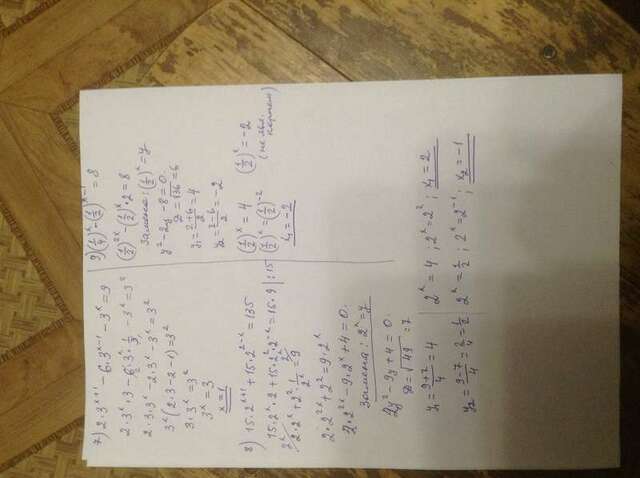 7) 2·3^(x+1) - 6·3^(x-1) - 3^x = 9
2·3^x·3 - 6·3^x·1/3 - 3^x = 3^2
2·3·3^x - 2·3^x - 3^x = 3^2
3^x(2·3-2-1) = 3^2
3·3^x = 3^2
3^x = 3
x = 1
8) 15·2^(x+1) + 15·2^(2-x) = 135
15·2^x·2 + 15·2^2·2^(-x) = 15·9 |:15
2·2^x + 2^2·1/2^x = 9
2·2^(2x) + 2^2 = 9·2^x
2·2^(2x) - 9·2^x + 4 = 0.
Замена: 2^x = y
2y^2 - 9y + 4 = 0.
D = √49 = 7
y1 = (9+7)/4 = 4
y2 = (9-7)/4 = 2/4 = 1/2
2^x = 4; 2^x = 2^2; x1 = 2
2^x = 1/2; 2^x = 2^-1; x2 = -1
9) (1/4)^x - (1/2)^(x-1) = 8
(1/2)^(2x) - (1/2)^x·2 = 8
Замена: (1/2)^x = y
y^2 - 2y - 8 = 0.
D = √36 = 6
y1 = (2+6)/2 = 4
y2 = (2-6)/2 = -2
(1/2)^x = 4
(1/2)^x = (1/2)^-2
x1 = -2
(1/2)^x = -2
(не явл.
корнем)